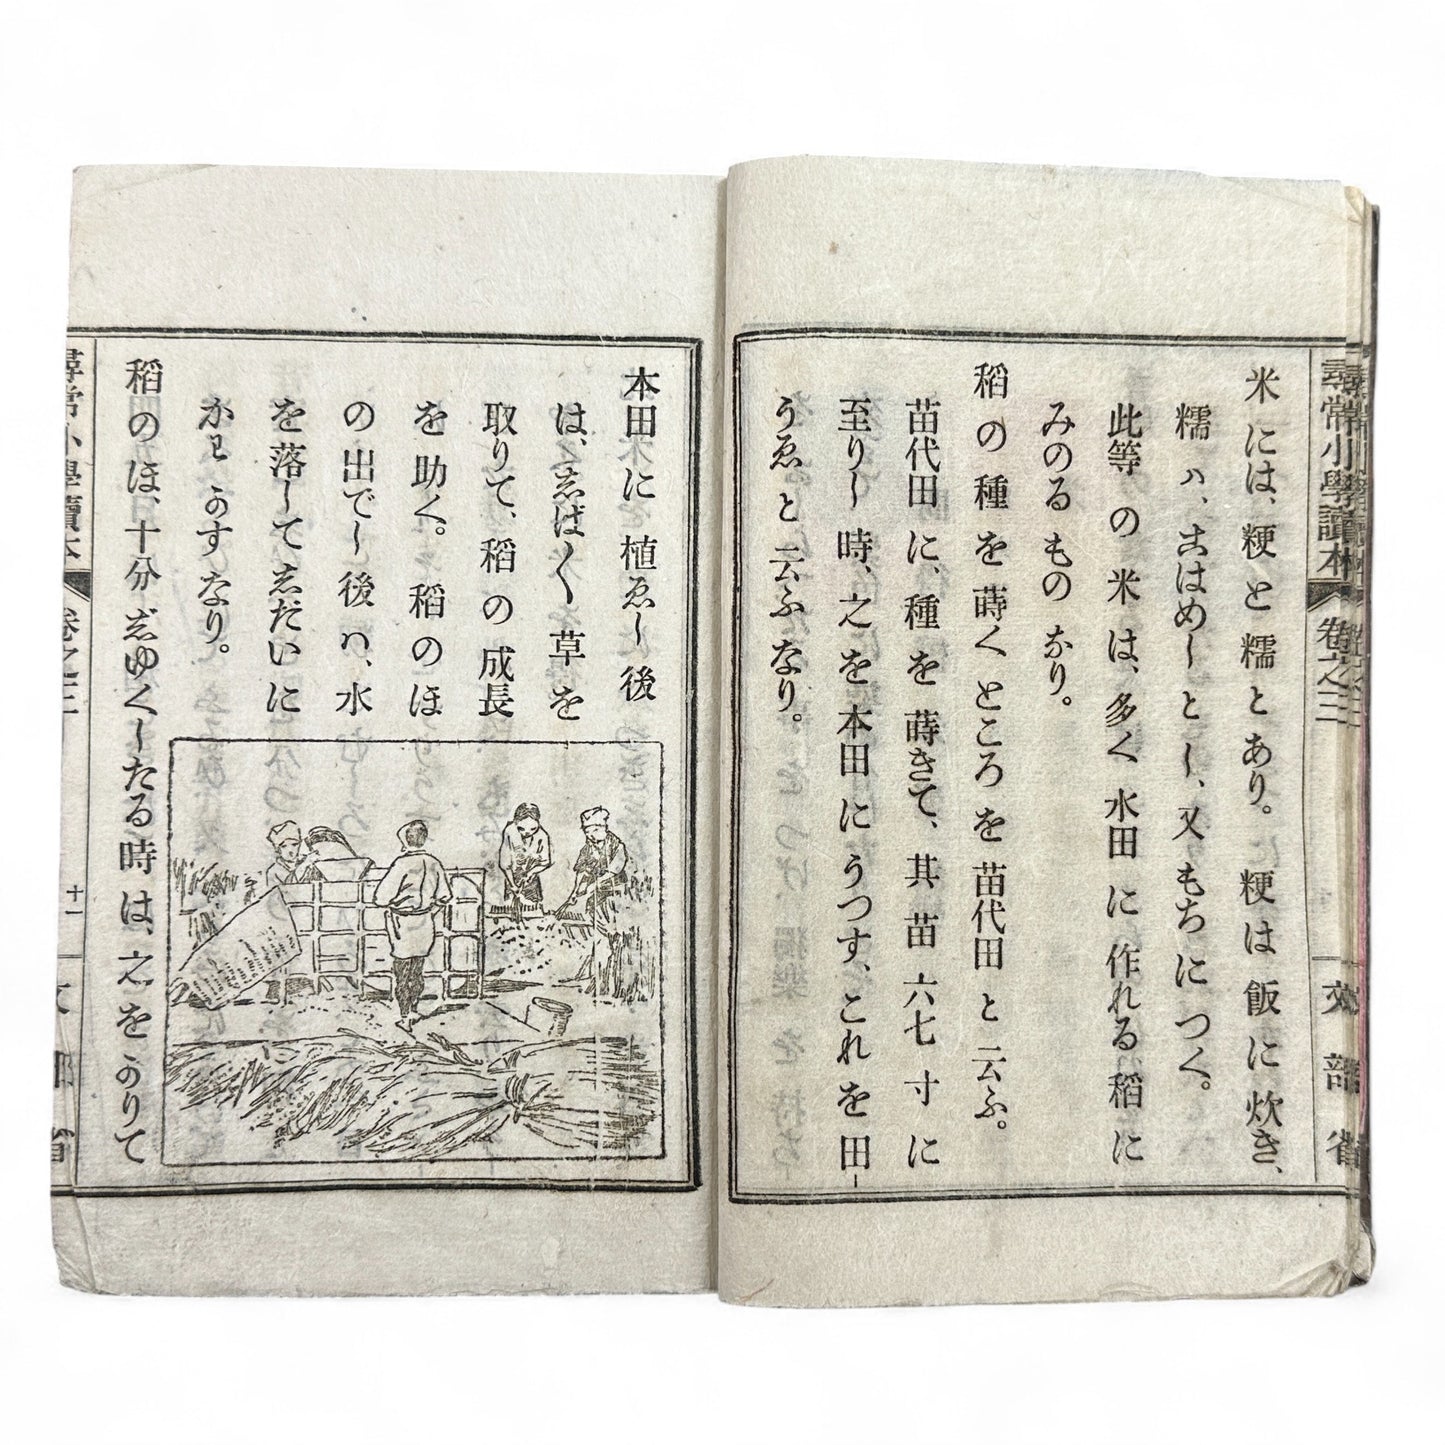 尋常小學讀本 卷之三 文部省
米には、粳と糯とあり。粳は飯に炊き、
糯ハ、こはめしとし、又もちにつく。
此等の米は、多く水田に作れる稻に
みのるものなり。
稻の種を蒔くところを苗代田と云ふ。
苗代田に、種を蒔きて、其苗六七寸に
至りし時、之を本田にうつす、これを田-
うゑと云ふなり。
本田に植ゑし後
は、しばしば草を
取りて、稻の成長
を助く。稻のほ
の出でし後ハ、水
を落してしだいに
かわかすなり。
稻のほ、十分じゆくしたる時は、之をかりて
尋常小學讀本 卷之三 十一 文部省